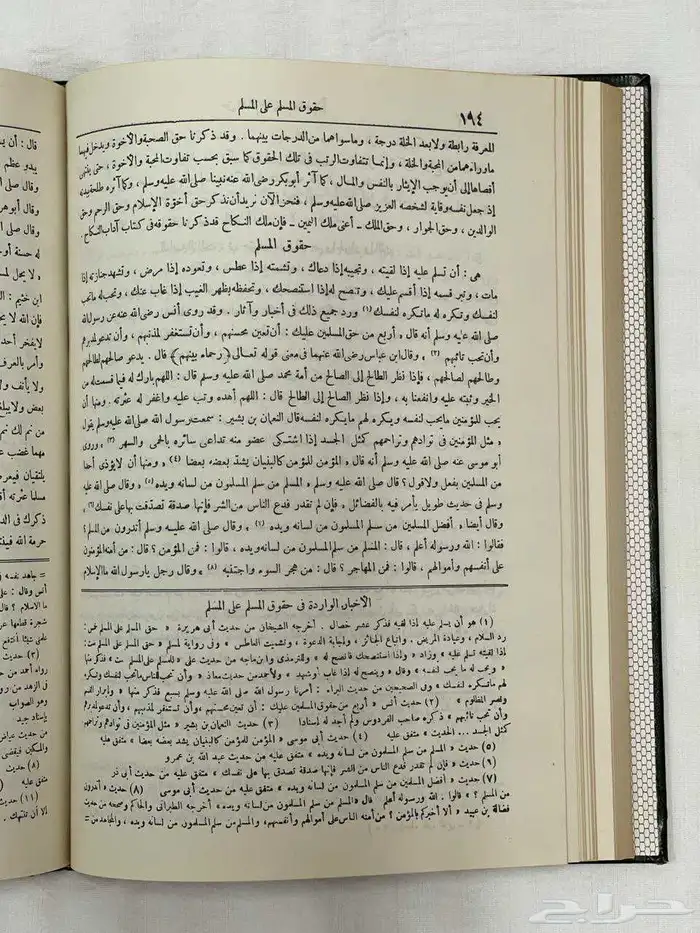 حقوق المسلم على المسلم
١٩٤
للمعرفة رابطة ولا بعد الخلة درجة ، وما سواهما من الدرجات بينهما . وقد ذكرنا حق الصحبة والأخوة ويدخل فيها
ما وراءهما من المحبة والخلة ، وإنما تتفاوت الرتب فى تلك الحقوق كما سبق بحسب تفاوت المحبة والأخوة ، حتى ينتهى
أقصاها إلى أن يوجب الإيثار بالنفس والمال ، كما آثر أبو بكر رضى الله عنه نبينا صلى الله عليه وسلم ، وكما آثره طلحة ببدنه
إذ جعل نفسه وقاية لشخصه العزيز صلى الله عليه وسلم ، فنحن الآن نريد أن نذكر حق أخوّة الإسلام وحق الرحم وحق
الوالدين ، وحق الجوار ، وحق الملك ـ أعنى ملك اليمين ـ فإن ملك النكاح قد ذكرنا حقوقه فى كتاب آداب النكاح.
حقوق المسلم
هى : أن تسلم عليه إذا لقيته ، وتجيبه إذا دعاك ، وتشمته إذا عطس ، وتعوده إذا مرض ، وتشهد جنازته إذا
مات ، وتبر قسمه إذا أقسم عليك ، وتنصح له إذا استنصحك ، وتحفظه بظهر الغيب إذا غاب عنك ، وتحب له ما تحب
لنفسك وتكره له ما تكره لنفسك (١) ورد جميع ذلك فى أخبار وآثار . وقد روى أنس رضى الله عنه عن رسول الله
صلى الله عليه وسلم أنه قال « أربع من حق المسلمين عليك : أن تعين محسنهم ، وأن تستغفر لمذنبهم ، وأن تدعو لمدبرهم
وأن تحب تائبهم (٢) » وقال ابن عباس رضى الله عنهما فى معنى قوله تعالى ﴿رحماء بينهم﴾ قال . يدعو صالحهم لطالحهم
وطالحهم لصالحهم ، فإذا نظر الطالح إلى الصالح من أمة محمد صلى الله عليه وسلم قال : اللهم بارك له فيما قسمت له من
الخير وثبته عليه وانفعنا به ، وإذا نظر الصالح إلى الطالح قال : اللهم أهده وتب عليه واغفر له عثرته . ومنها أن
يحب للمؤمنين ما يحب لنفسه ويكره لهم ما يكره لنفسه قال النعمان بن بشير : سمعت رسول الله صلى الله عليه وسلم يقول
« مثل المؤمنين فى توادهم وتراحمهم كمثل الجسد إذا اشتكى عضو منه تداعى سائره بالحمى والسهر (٣) » وروى
أبو موسى عنه صلى الله عليه وسلم أنه قال « المؤمن للمؤمن كالبنيان يشدّ بعضه بعضا (٤) » ومنها أن لا يؤذى أحدا
من المسلمين بفعل ولا قول ؟ قال صلى الله عليه وسلم « المسلم من سلم المسلمون من لسانه ويده (٥) » وقال صلى الله عليه
وسلم فى حديث طويل يأمر فيه بالفضائل « فإن لم تقدر فدع الناس من الشر فإنها صدقة تصدّقت بها على نفسك (٦) »
وقال أيضا « أفضل المسلمين من سلم المسلمون من لسانه ويده (٧) » وقال صلى الله عليه وسلم أتدرون من المسلم ؟
فقالوا : الله ورسوله أعلم ، قال : المسلم من سلم المسلمون من لسانه ويده ، قالوا : فمن المؤمن ؟ قال : من أمنه المؤمنون
على أنفسهم وأموالهم ، قالوا : فمن المهاجر ؟ قال : من هجر السوء واجتنبه (٨) » وقال رجل يا رسول الله ما الإسلام
الأخبار الواردة فى حقوق المسلم على المسلم
(١) هو أن يسلم عليه إذا لقيه فذكر عشر خصال . أخرجه الشيخان من حديث أبى هريرة « حق المسلم على المسلم خمس :
رد السلام ، وعيادة المريض . واتباع الجنائز ، وإجابة الدعوة ، وتشميت العاطس » وفى رواية لمسلم « حق المسلم على المسلم ست :
إذا لقيته تسلم عليه » وزاد « وإذا استنصحك فانصح له » وللترمذى وابن ماجه من حديث على « للمسلم على المسلم ست » فذكر منها
« ويحب له ما يحب لنفسه » وقال « وينصح له إذا غاب أو شهد » ولأحمد من حديث معاذ « وأن تحب للناس ما تحب لنفسك وتكره
لهم ما تكره لنفسك » وفى الصحيحين من حديث البراء : أمرنا رسول الله صلى الله عليه وسلم بسبع فذكر منها « وإبرار القسم
ونصر المظلوم » (٢) حديث أنس « أربع من حقوق المسلمين عليك : أن تعين محسنهم ، وأن تستغفر لمذنبهم ، وأن تدعو لمدبرهم
وأن تحب تائبهم » ذكره صاحب الفردوس ولم أجد له إسنادا (٣) حديث النعمان بن بشير « مثل المؤمنين فى توادهم وتراحمهم
كمثل الجسد ... الحديث » متفق عليه (٤) حديث أبى موسى « المؤمن للمؤمن كالبنيان يشد بعضه بعضا » متفق عليه
(٥) حديث « المسلم من سلم المسلمون من لسانه ويده » متفق عليه من حديث عبد الله بن عمرو
(٦) حديث « فإن لم تقدر فدع الناس من الشر فإنها صدقة تصدق بها على نفسك » متفق عليه من حديث أبى ذر
(٧) حديث « أفضل المسلمين من سلم المسلمون من لسانه ويده » متفق عليه من حديث أبى موسى (٨) حديث « أتدرون
من المسلم ؟ » قالوا . الله ورسوله أعلم . قال « المسلم من سلم المسلمون من لسانه ويده » أخرجه الطبرانى والحاكم وصححه من حديث
فضالة بن عبيد « ألا أخبركم بالمؤمن ؟ من أمنه الناس على أموالهم وأنفسهم، والمسلم من سلم المسلمون من لسانه ويده ، والمجاهد من =
حراج